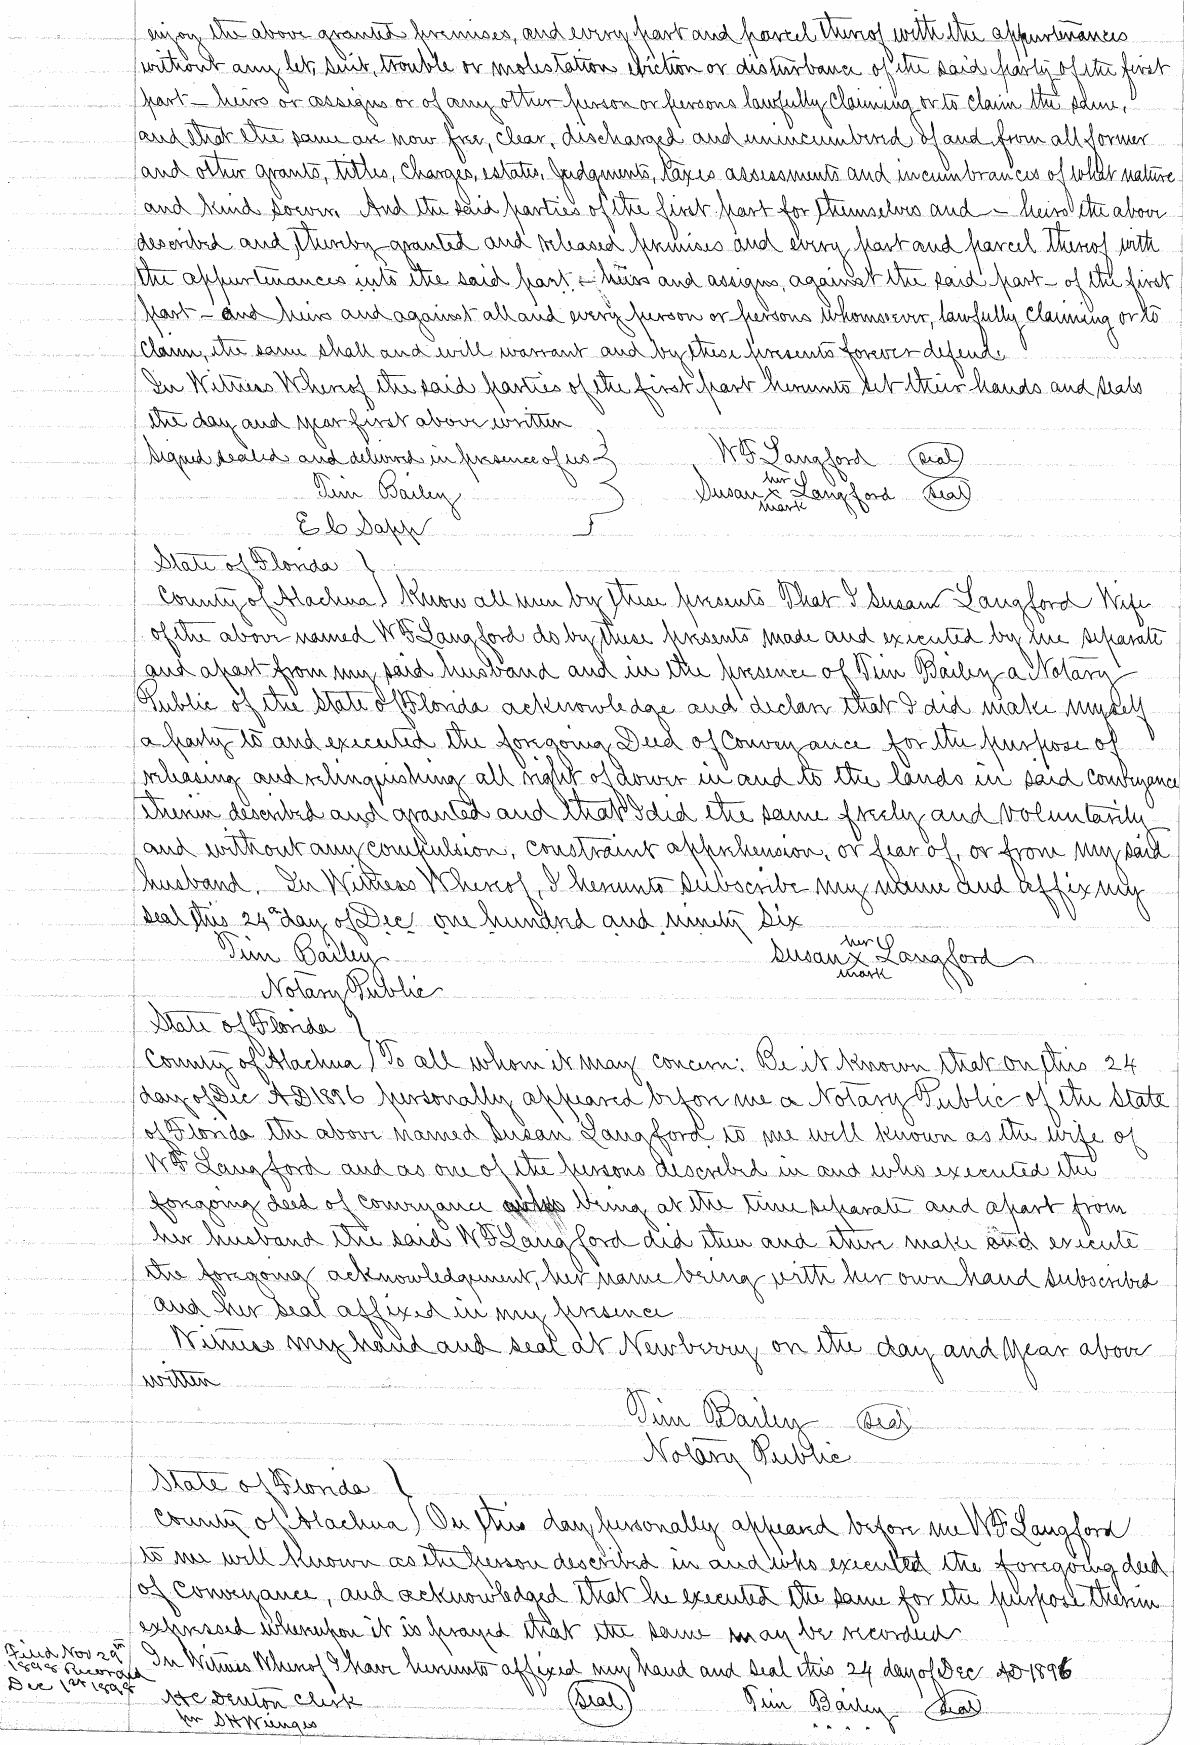 enjoy the above granted premises, and every part and parcel thereof with the appurtenances
without any let, suit, trouble or molestation eviction or disturbance of the said party of the first
part – heirs or assigns or of any other person or persons lawfully claiming or to claim the same,
and that the same are now free, clear, discharged and unincumbered of and from all former
and other grants, titles, charges, estates, judgments, taxes assessments and incumbrances of what nature
and kind soever. And the said parties of the first part for themselves and – heirs the above
described and thereby granted and released premises and every part and parcel thereof with
the appurtenances into the said part – heirs and assigns, against the said part – of the first
part – and heirs and against all and every person or persons whomsoever, lawfully claiming or to
claim, the same shall and will warrant and by these presents forever defend.
In Witness Whereof the said parties of the first part hereunto set their hands and seals
the day and year first above written
Signed sealed and delivered in presence of us } W F Langford (seal)
Tim Bailey } Susan her x mark Langford (seal)
E C Sapp
State of Florida }
County of Alachua } Know all men by these presents That I Susan Langford Wife
of the above named W F Langford do by these presents made and executed by me separate
and apart from my said husband and in the presence of Tim Bailey a Notary
Public of the State of Florida acknowledge and declare that I did make myself
a party to and executed the foregoing Deed of Conveyance for the purpose of
releasing and relinquishing all right of dower in and to the lands in said conveyance
therein described and granted and that I did the same freely and voluntarily
and without any compulsion, constraint apprehension, or fear of, or from my said
husband. In Witness Whereof, I hereunto subscribe my name and affix my
seal this 24th day of Dec one hundred and ninety six
Tim Bailey Susan her x mark Langford
Notary Public
State of Florida }
County of Alachua } To all whom it may concern: Be it known that on this 24
day of Dec AD 1896 personally appeared before me a Notary Public of the State
of Florida the above named Susan Langford to me well known as the wife of
W F Langford and as one of the persons described in and who executed the
foregoing deed of conveyance being at the time separate and apart from
her husband the said W F Langford did then and there make and execute
the foregoing acknowledgement, her name being with her own hand subscribed
and her seal affixed in my presence
Witness my hand and seal at Newberry on the day and year above
written
Tim Bailey (seal)
Notary Public
State of Florida }
County of Alachua } On this day personally appeared before me W F Langford
to me well known as the person described in and who executed the foregoing deed
of conveyance, and acknowledged that he executed the same for the purpose therein
expressed whereupon it is prayed that the same may be recorded
In Witness Whereof I have hereunto affixed my hand and seal this 24 day of Dec AD 1896
Filed Nov 29th
1898 Recorded
Dec 1st 1898
H C Denton Clerk (seal) Tim Bailey (seal)
per S H Wienges